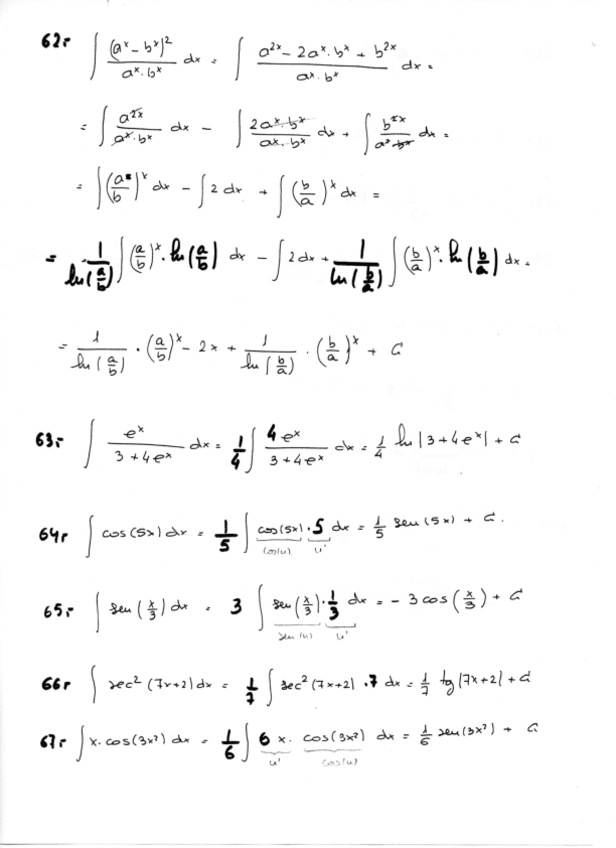 62.- ∫ (aˣ - bˣ)² / (aˣ · bˣ) dx = ∫ (a²ˣ - 2aˣ · bˣ + b²ˣ) / (aˣ · bˣ) dx =
= ∫ a²ˣ / (aˣ · bˣ) dx - ∫ 2aˣ · bˣ / (aˣ · bˣ) dx + ∫ b²ˣ / (aˣ · bˣ) dx =
= ∫ (a/b)ˣ dx - ∫ 2 dx + ∫ (b/a)ˣ dx =
= 1/ln(a/b) ∫ (a/b)ˣ · ln(a/b) dx - ∫ 2 dx + 1/ln(b/a) ∫ (b/a)ˣ · ln(b/a) dx =
= 1/ln(a/b) · (a/b)ˣ - 2x + 1/ln(b/a) · (b/a)ˣ + C
63.- ∫ eˣ / (3 + 4eˣ) dx = 1/4 ∫ 4eˣ / (3 + 4eˣ) dx = 1/4 ln |3 + 4eˣ| + C
64.- ∫ cos(5x) dx = 1/5 ∫ cos(5x) · 5 dx = 1/5 sen(5x) + C.
cos(u) u'
65.- ∫ sen(x/3) dx = 3 ∫ sen(x/3) · 1/3 dx = - 3 cos(x/3) + C
sen(u) u'
66.- ∫ sec²(7x+2) dx = 1/7 ∫ sec²(7x+2) · 7 dx = 1/7 tg(7x+2) + C
67.- ∫ x · cos(3x²) dx = 1/6 ∫ 6x · cos(3x²) dx = 1/6 sen(3x²) + C
u' cos(u)